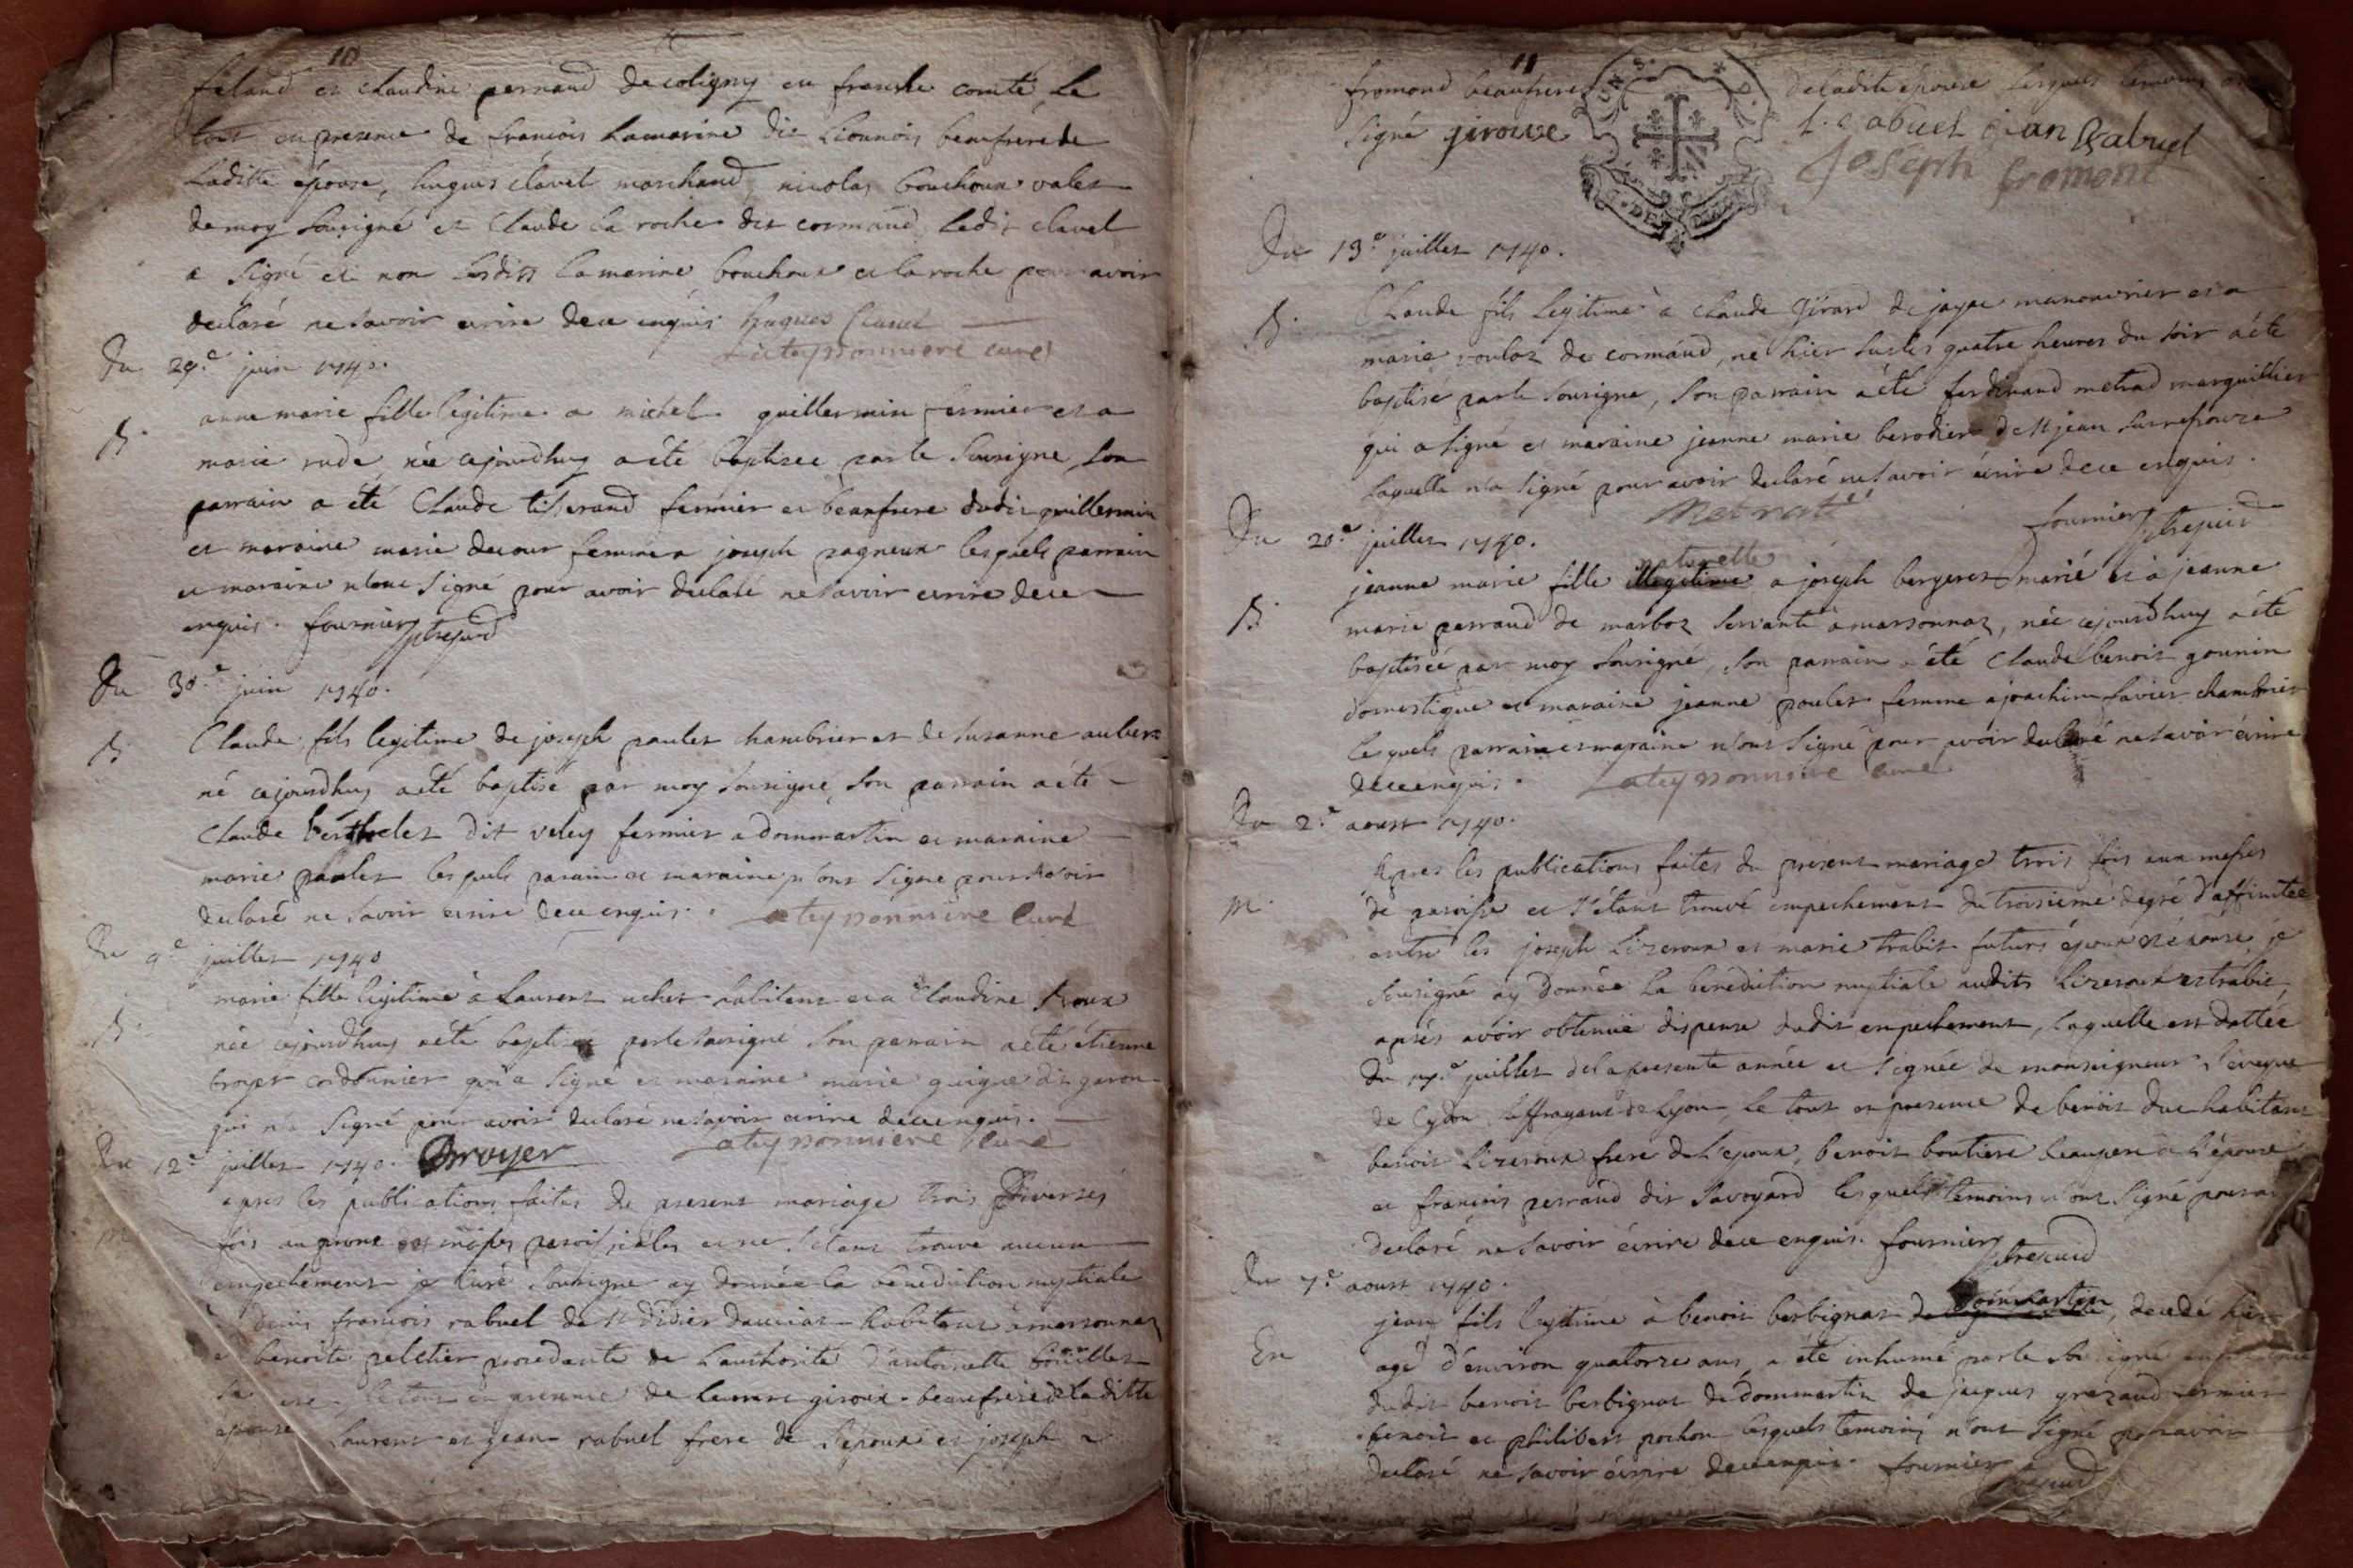 10
feland et claudine pernaud de coligny en franche comté, le
tout en presence de francois lamarine dit Lionnois beaufrere de
laditte épouse, hugues clavel marchand, nicolas bouchoux valet
de moy sousigné et Claude la roche dit cormand, ledit clavel
a signé et non lesdits lamarine bouchoux et la roche pour avoir
declaré ne savoir ecrire de ce enquis. hugues clavel
Lateyssonniere curé
Du 29.e juin 1740.
B.
anne marie fille legitime a michel guillermin fermier et a
marie rude, née cejourdhuy a été baptisée par le sousigné, son
parrain a été Claude tisserand fermier et beaufrere dudit guillermin
et maraine marie decour femme a joseph pagneux lesquels parrain
et maraine n'ont signé pour avoir declaré ne savoir ecrire de ce
enquis. fournier
Du 30.e juin 1740.
B.
Claude fils legitime de joseph paulet chambrier et de susanne aubert
né cejourdhuy a été baptisé par moy sousigné, son parrain a été
Claude berthelet dit veley fermier a dommartin et maraine
marie paulet lesquels parain et maraine n'ont signé pour avoir
declaré ne savoir ecrire de ce enquis. Lateyssonniere curé
Du 9.e juillet 1740
B.
marie fille legitime à Laurent uchet habitant et a Claudine Roux
née cejourdhuy a été baptisée par le sousigné son parrain a été étienne
broyer cordonnier qui a signé et maraine marie guigue dit
qui n'a signé pour avoir declaré ne savoir ecrire de ce enquis.
Lateyssonniere curé
Du 12.e juillet 1740. Broyer
m.
apres les publications faites du present mariage trois diverses
fois au prone des messes paroissiales et ne s'étant trouvé aucun
empechement je curé sousigné ay donnée la benediction nuptiale
a denis francois rabuel de st didier daussiat habitant a marsonnaz
et benoite peletier procedante de l'authorité d'antoinette
sa mere, le tout en presence de giroux beaufrere de laditte
epouse Laurent et jean rabuel frere de l'époux et joseph
11
fromond beaufrere de ladite épouse lesquels temoins ont
signé giroux l. rabuel jean Rabuel
Joseph fromont
Du 13.e juillet 1740.
B.
Claude fils legitime à claude Girard de jayat manouvrier et a
marie de cormand, né hier sur les quatre heures du soir a été
baptisé par le sousigné, son parrain a été ferdinand metrad marguillier
qui a signé et maraine jeanne marie berodier de st jean sur reyssouze
laquelle n'a signé pour avoir declaré ne savoir écrire de ce enquis.
Metrat fournier
Du 20.e juillet 1740.
naturelle
B.
jeanne marie fille illegitime a joseph bergeret marié et à jeanne
marie perraud de marboz servante a marsonnaz, née cejourdhuy a été
baptisée par moy sousigné, son parrain a été Claude benoit gounin
domestique et maraine jeanne poulet femme a joachim favier chambrier
lesquels parrain et maraine n'ont signé pour avoir declaré ne savoir écrire
de ce enquis. Lateyssonniere curé
Du 2.e aoust 1740.
m.
Apres les publications faites du present mariage trois fois aux messes
de paroisse et s'étant trouvé empechement du troisieme degré d'affinitée
entre les joseph Lizeroux et marie trabit futurs époux et épouse, je
sousigné ay donnée la benediction nuptiale audits Lizeroux et trabit,
après avoir obtenüe dispense dudit empechement, laquelle est dattée
du juillet de la presente année et signée de monseigneur l'eveque
de Cydon suffragant de Lyon, le tout en presence de benoit duc habitant
benoit Lizeroux frere de l'epoux, benoit boutiere beaupere a l'épouse
et francois perraud dit savoyard lesquels temoins n'ont signé pour avoir
declaré ne savoir écrire de ce enquis. fournier
Du 7.e aoust 1740.
En
jean fils legitime à benoit berbignat de dommartin, decedé hier
agé d'environ quatorze ans, a été inhumé par le sousigné en presence
dudit benoit berbignat de dommartin de jacques grezaud fermier
benoit et philibert pochon lesquels temoins n'ont signé pour avoir
declaré ne savoir écrire de ce enquis. fournier